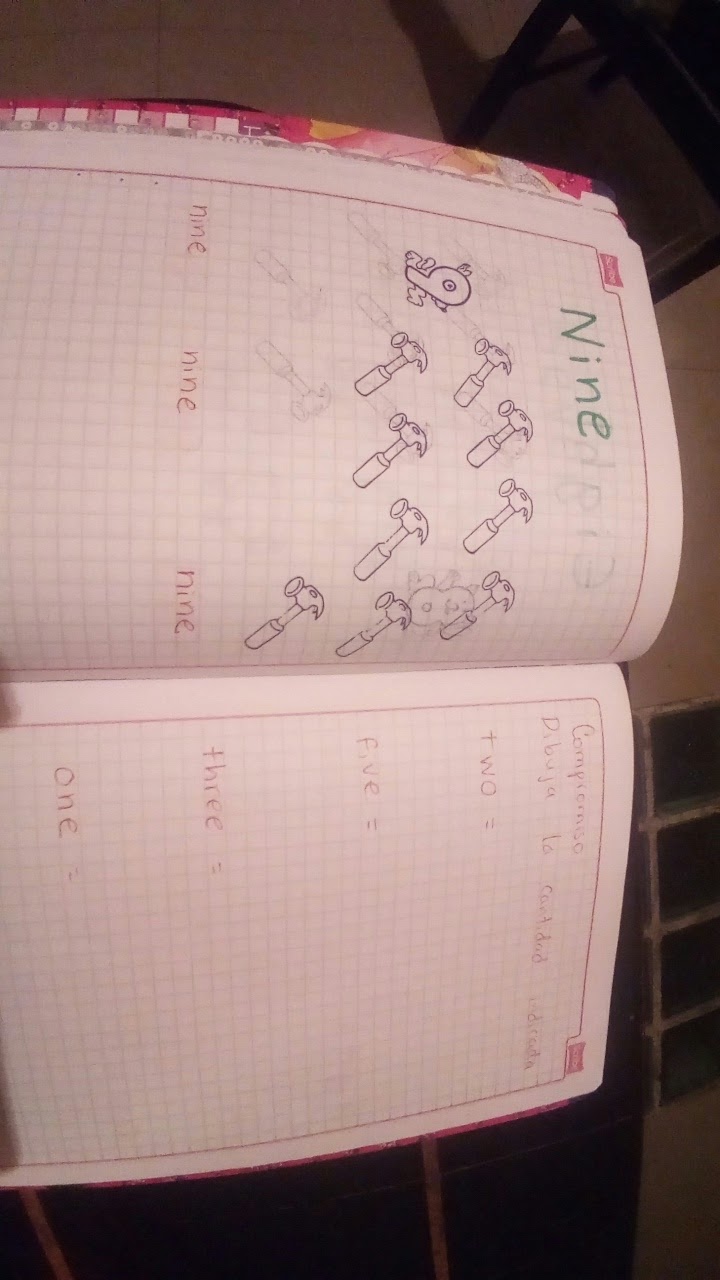 Nine
nine nine nine
Compromiso
Dibuja la cantidad indicada
two =
five =
three =
one =